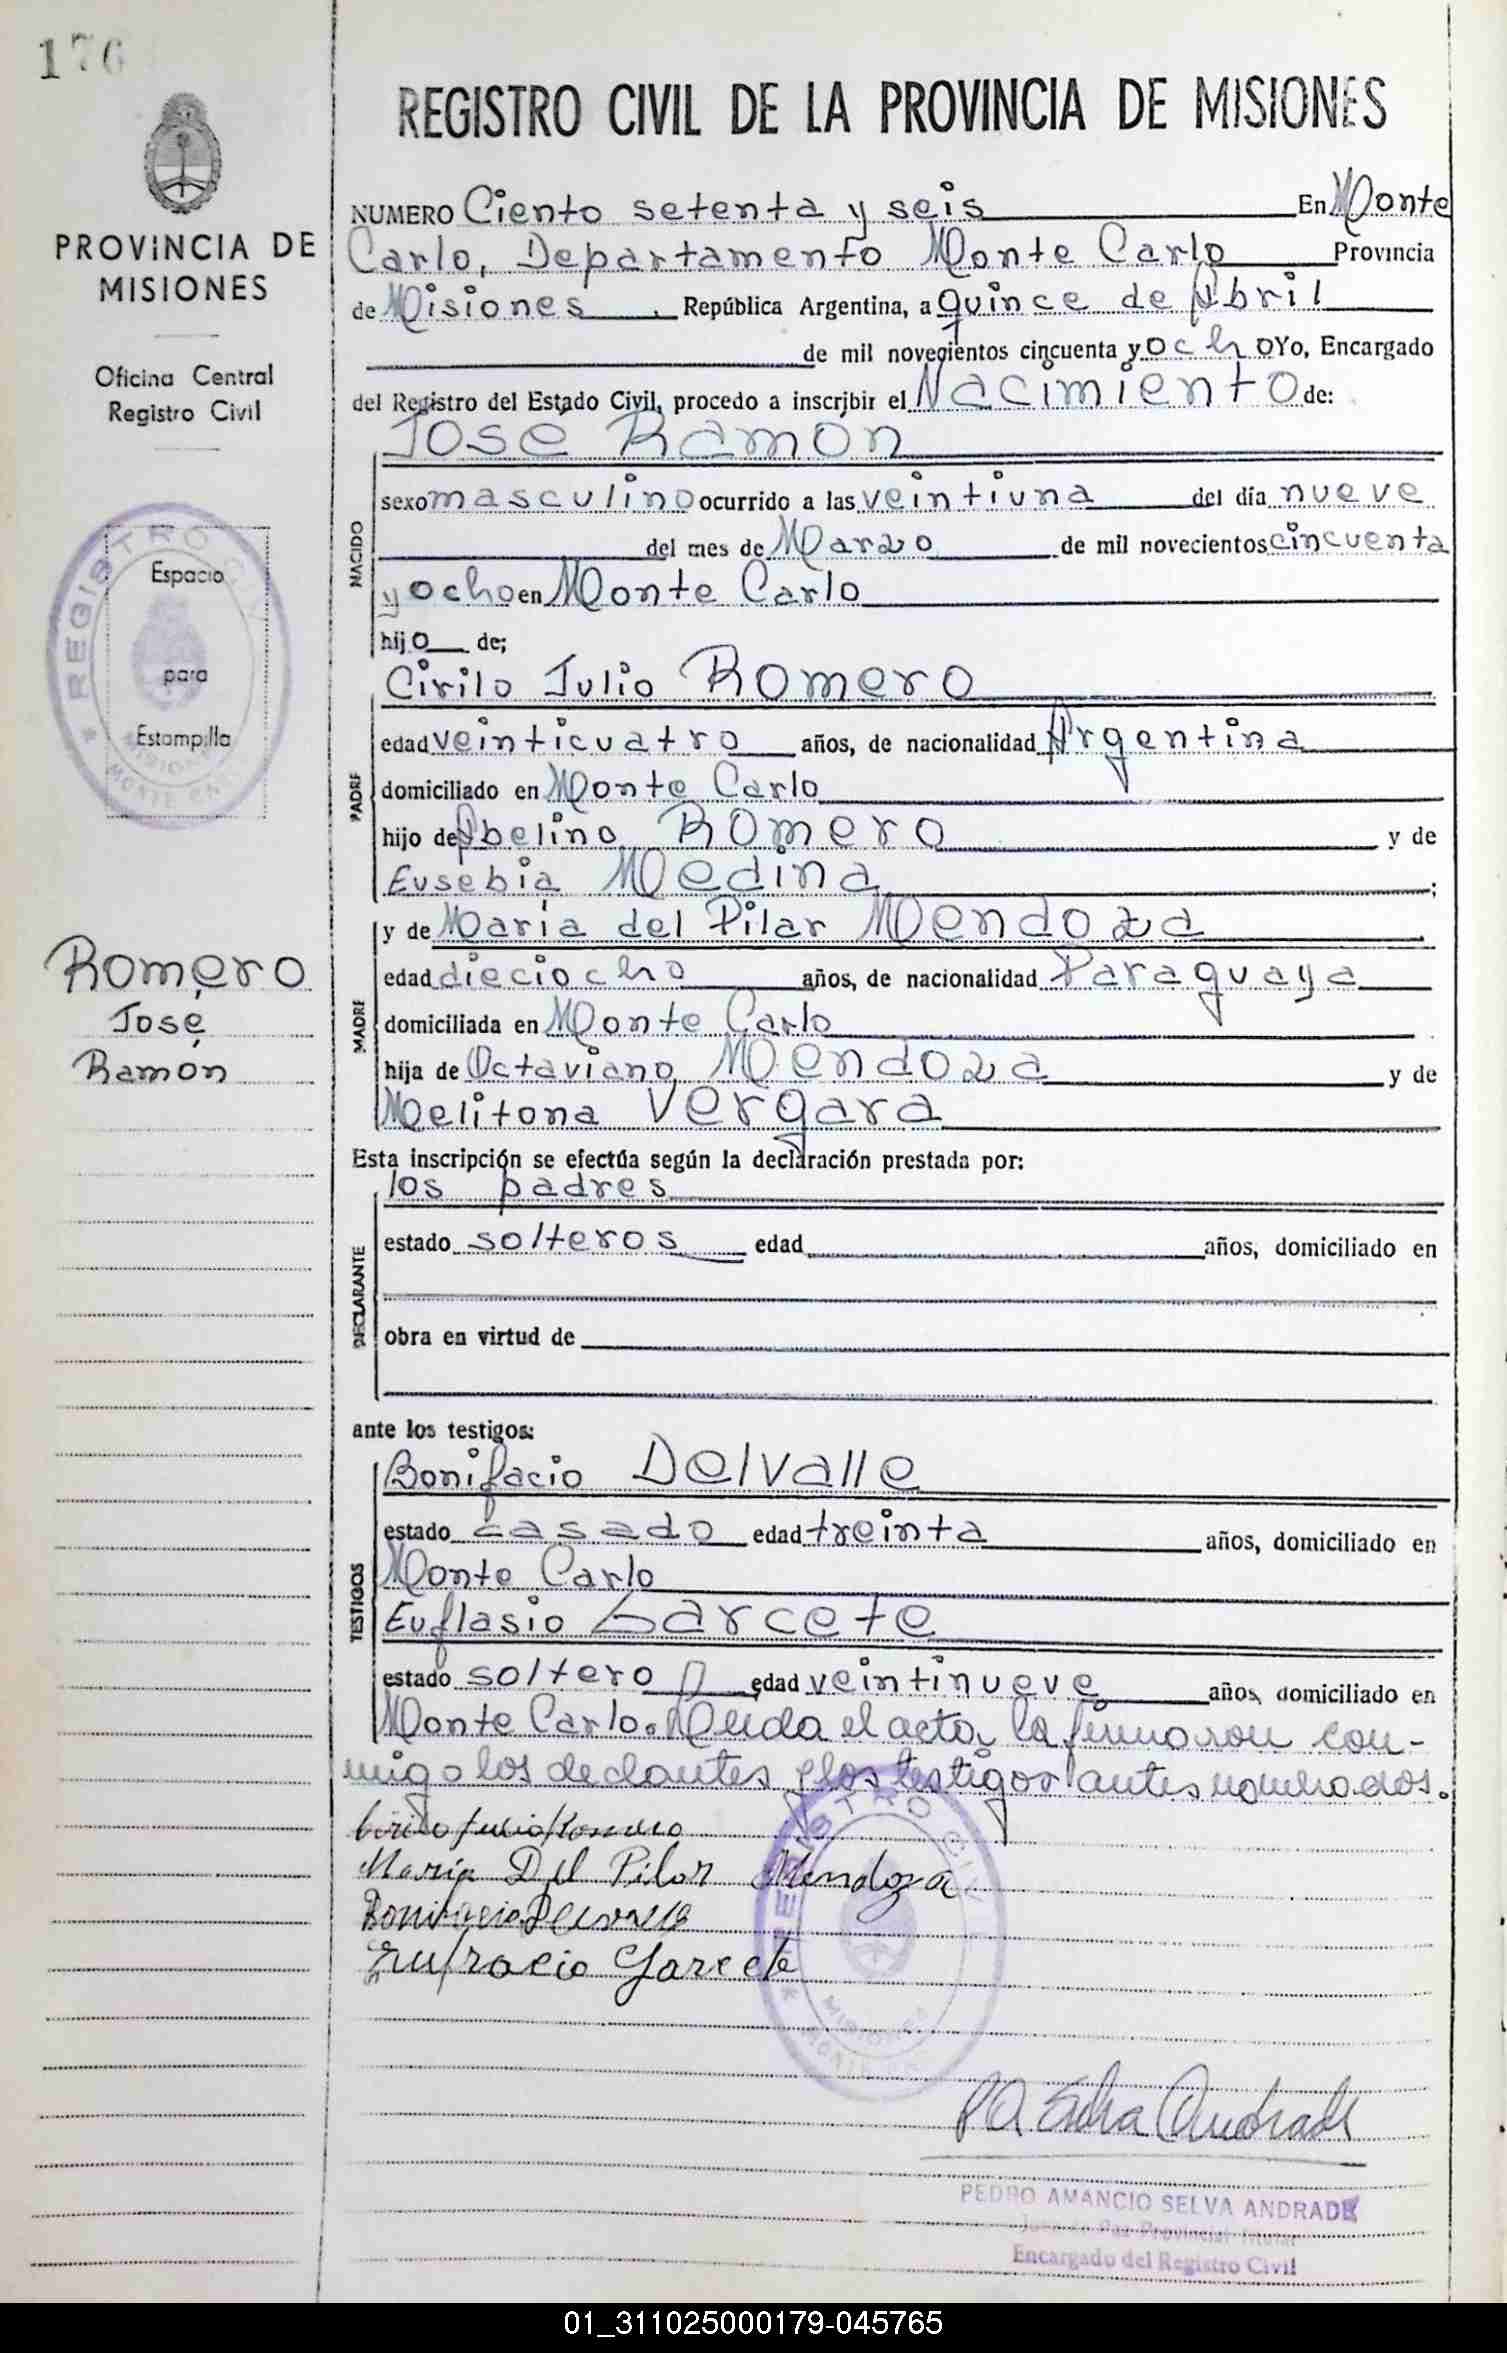 176
PROVINCIA DE
MISIONES
Oficina Central
Registro Civil
REGISTRO CIVIL
Espacio
para
Estampilla
MISIONES
MONTE
Romero
José
Ramón
REGISTRO CIVIL DE LA PROVINCIA DE MISIONES
NUMERO Ciento setenta y seis En Monte
Carlo, Departamento Monte Carlo Provincia
de Misiones, República Argentina, a quince de Abril
de mil novecientos cincuenta y ocho Yo, Encargado
del Registro del Estado Civil, procedo a inscribir el Nacimiento de:
José Ramón
NACIDO
sexo masculino ocurrido a las veintiuna del día nueve
del mes de Marzo de mil novecientos cincuenta
y ocho en Monte Carlo
hijo de;
Cirilo Julio Romero
PADRE
edad veinticuatro años, de nacionalidad Argentina
domiciliado en Monte Carlo
hijo de Abelino Romero y de
Eusebia Medina;
y de María del Pilar Mendoza
MADRE
edad dieciocho años, de nacionalidad Paraguaya
domiciliada en Monte Carlo
hija de Octaviano Mendoza y de
Melitona Vergara
Esta inscripción se efectúa según la declaración prestada por:
los padres
DECLARANTE
estado solteros edad años, domiciliado en
obra en virtud de
ante los testigos:
Bonifacio Delvalle
TESTIGOS
estado casado edad treinta años, domiciliado en
Monte Carlo
Euflasio Garcete
estado soltero edad veintinueve años, domiciliado en
Monte Carlo. Leida el acta, la firmaron con-
migo los declantes y los testigos antes nombrados.
Cirilo Julio Romero
María Del Pilar Mendoza
Bonifacio Delvalle
Eufracio Garcete
REGISTRO CIVIL
MISIONES
MONTE
P A Selva Andrade
PEDRO AMANCIO SELVA ANDRADE
Juez de Paz Provincial Titular
Encargado del Registro Civil
01_311025000179-045765